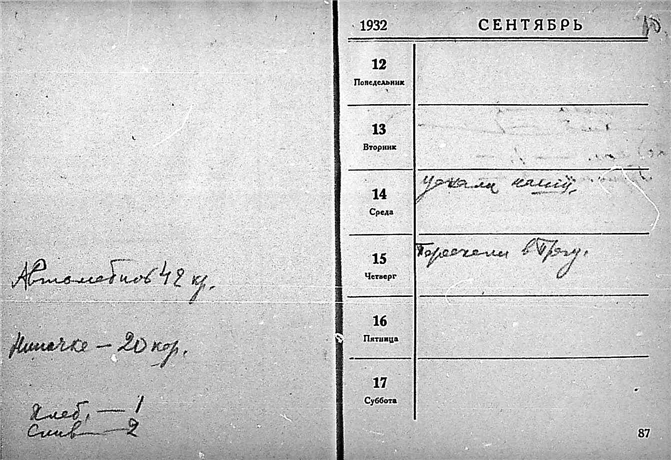 Автомобиль 42 кр.
Ниночке — 20 кор.
Хлеб, — 1
Слив — 2
1932 СЕНТЯБРЬ
12
Понедельник
13
Вторник
14
Среда
уехали наши.
15
Четверг
Переехали в Прагу.
16
Пятница
17
Суббота
87